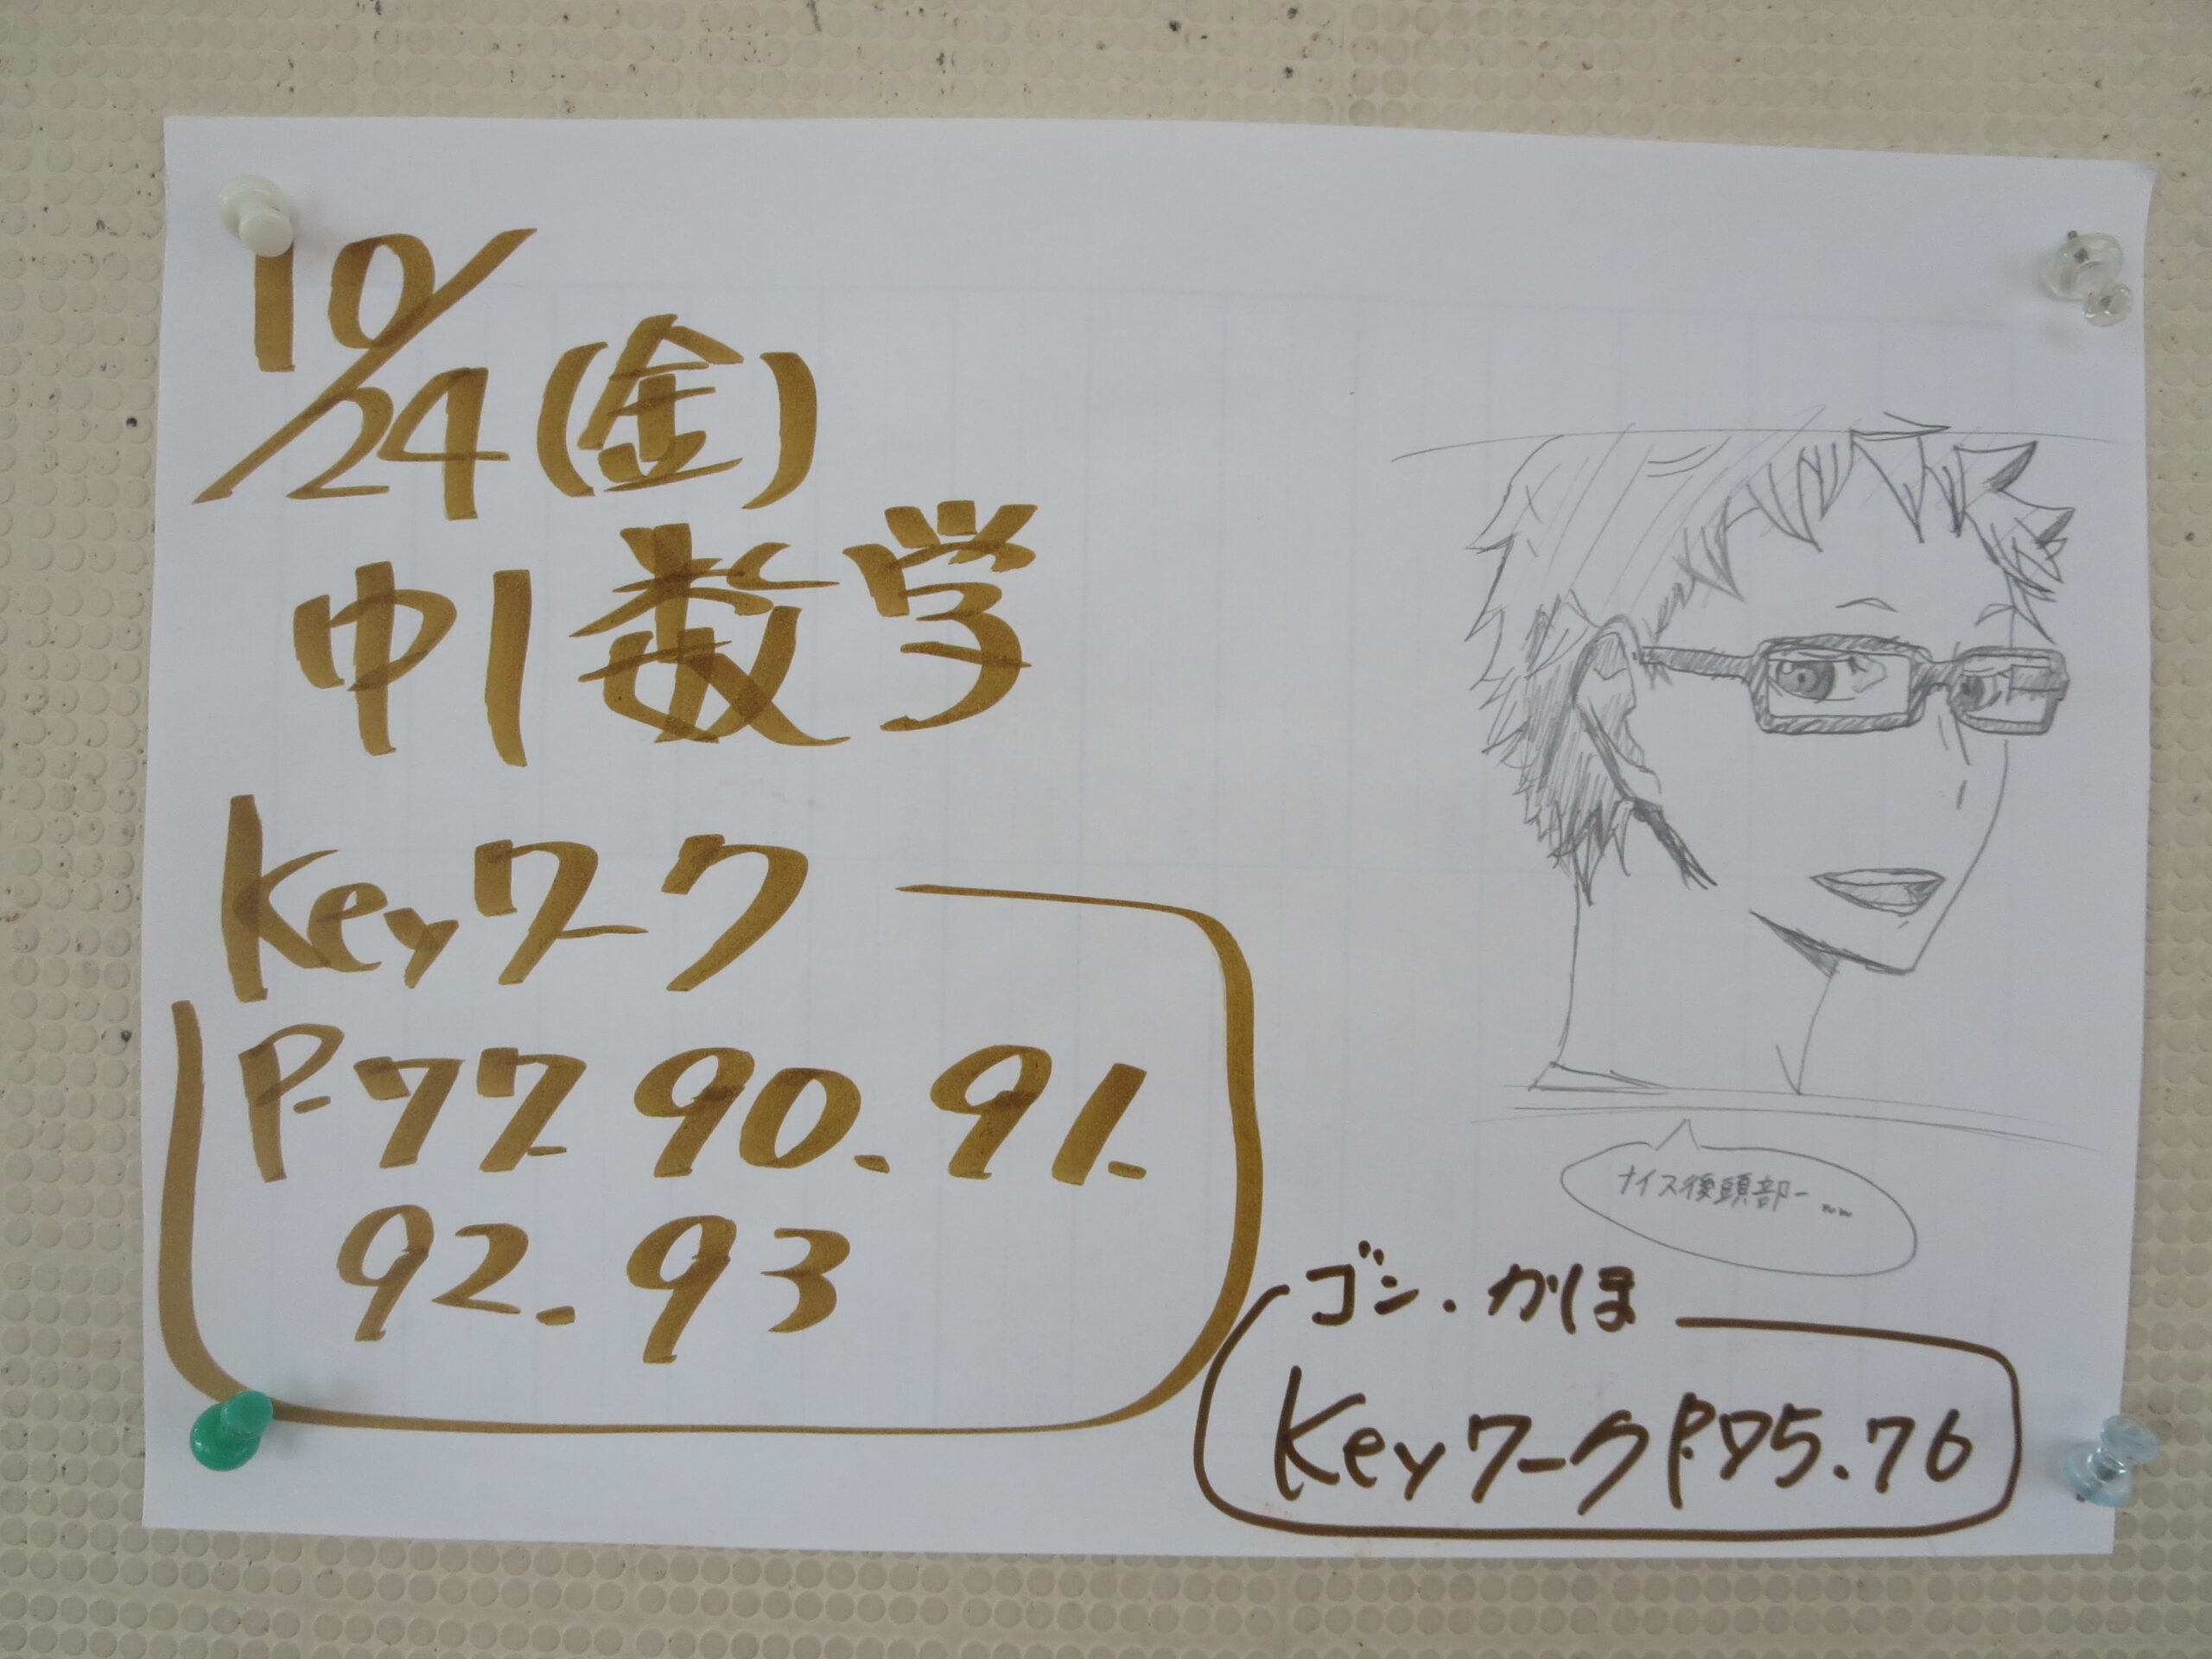 10/24(金)
中1数学
Keyワーク
P.77.90.91.
92.93
ナイス後頭部ー
ゴン.かほ
Keyワーク P.75.76